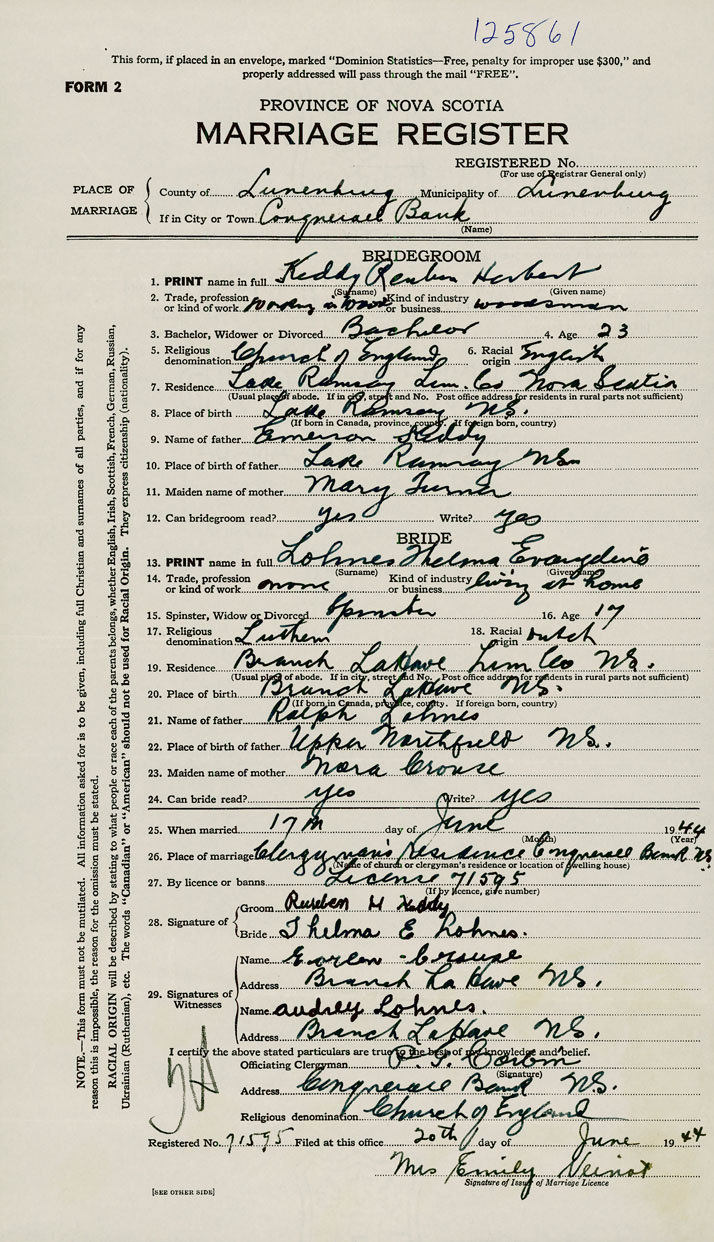 125861
This form, if placed in an envelope, marked "Dominion Statistics—Free, penalty for improper use $300," and
properly addressed will pass through the mail "FREE".
FORM 2
PROVINCE OF NOVA SCOTIA
MARRIAGE REGISTER
REGISTERED No.
(For use of Registrar General only)
PLACE OF MARRIAGE
County of Lunenburg Municipality of Lunenburg
If in City or Town Conquerall Bank
(Name)
BRIDEGROOM
1. PRINT name in full Keddy Reuben Herbert
(Surname) (Given name)
2. Trade, profession or kind of work working in woods Kind of industry or business woodsman
3. Bachelor, Widower or Divorced Bachelor 4. Age 23
5. Religious denomination Church of England 6. Racial origin English
7. Residence Lake Ramsay Lun. Co Nova Scotia
(Usual place of abode. If in city, street and No. Post office address for residents in rural parts not sufficient)
8. Place of birth Lake Ramsay NS.
(If born in Canada, province, county. If foreign born, country)
9. Name of father Emerson Keddy
10. Place of birth of father Lake Ramsay NS
11. Maiden name of mother Mary Turner
12. Can bridegroom read? yes Write? yes
BRIDE
13. PRINT name in full Lohnes Thelma Evangeline
(Surname) (Given name)
14. Trade, profession or kind of work none Kind of industry or business living at home
15. Spinster, Widow or Divorced Spinster 16. Age 17
17. Religious denomination Luthern 18. Racial origin Dutch
19. Residence Branch LaHave Lun Co NS.
(Usual place of abode. If in city, street and No. Post office address for residents in rural parts not sufficient)
20. Place of birth Branch LaHave NS.
(If born in Canada, province, county. If foreign born, country)
21. Name of father Ralph Lohnes
22. Place of birth of father Upper Northfield NS.
23. Maiden name of mother Nora Crouse
24. Can bride read? yes Write? yes
25. When married 17th day of June 1944
(Month) (Year)
26. Place of marriage Clergyman's Residence Conquerall Bank NS
(Name of church or clergyman's residence or location of dwelling house)
27. By licence or banns License 71595
(If by licence, give number)
28. Signature of
Groom Reuben H Keddy
Bride Thelma E Lohnes.
29. Signatures of Witnesses
Name
Address Branch La Have NS.
Name Audrey Lohnes.
Address Branch LaHave NS.
I certify the above stated particulars are true to the best of my knowledge and belief.
Officiating Clergyman
(Signature)
Address Conquerall Bank NS.
Religious denomination Church of England
Registered No. 71595 Filed at this office 20th day of June 1944
Mrs Emily Veinot
Signature of Issuer of Marriage Licence
[SEE OTHER SIDE]
NOTE.—This form must not be mutilated. All information asked for is to be given, including full Christian and surnames of all parties, and if for any
reason this is impossible, the reason for the omission must be stated.
RACIAL ORIGIN will be described by stating to what people or race each of the parents belongs, whether English, Irish, Scottish, French, German, Russian,
Ukrainian (Ruthenian), etc. The words "Canadian" or "American" should not be used for Racial Origin. They express citizenship (nationality).